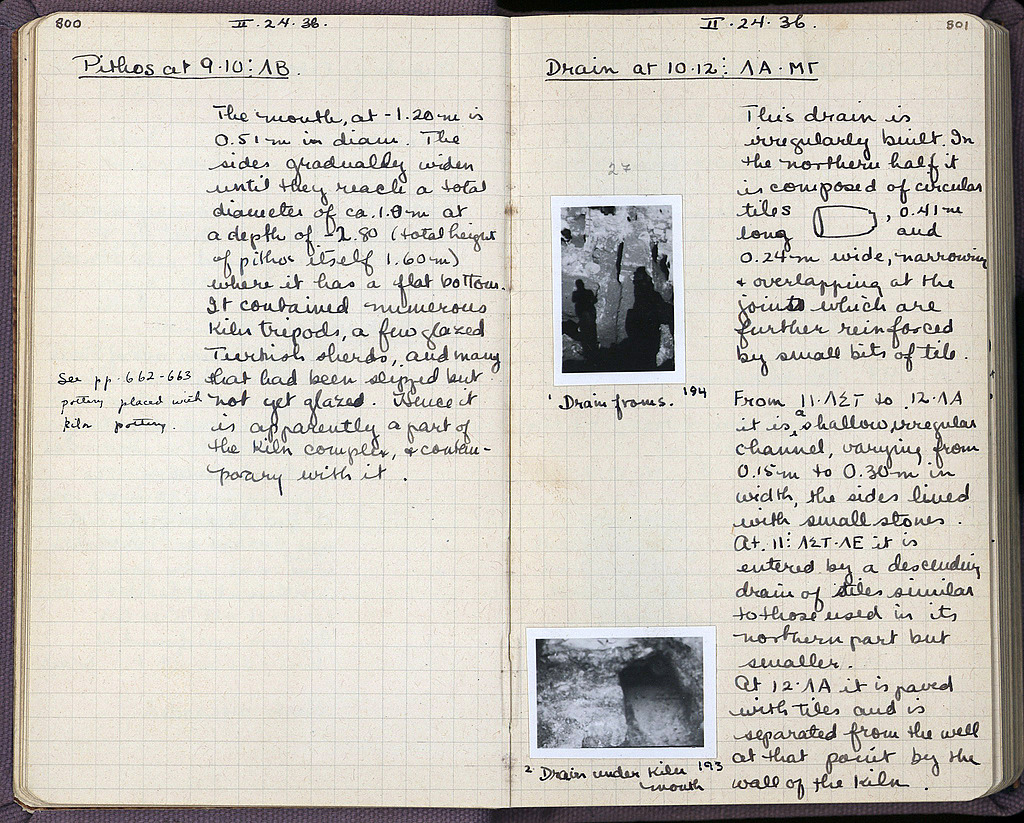 800
II · 24 · 36 .
Pithos at 9·10 : ΛB .
The mouth, at -1.20 m is
0.51 m in diam. The
sides gradually widen
until they reach a total
diameter of ca. 1.0 m at
a depth of -2.80 (total height
of pithos itself 1.60 m)
where it has a flat bottom.
It contained numerous
kiln tripods, a few glazed
Turkish sherds, and many
that had been slipped but
not yet glazed. Hence it
is apparently a part of
the kiln complex, & contem-
porary with it .
See pp. 662-663
pottery placed with
kiln pottery.
801
II · 24 · 36 .
Drain at 10·12 : ΛA · MΓ
27
1 Drain from s. 194
2 Drain under kiln 193
mouth
This drain is
irregularly built. In
the northern half it
is composed of circular
tiles , 0.41 m
long and
0.24 m wide, narrowing
& overlapping at the
joints which are
further reinforced
by small bits of tile.
From 11·ΛΣΤ to 12·ΛA
it is a shallow, irregular
channel, varying from
0.15 m to 0.30 m in
width, the sides lined
with small stones .
At 11 : ΛΣΤ·ΛE it is
entered by a descending
drain of tiles similar
to those used in its
northern part but
smaller .
At 12·ΛA it is paved
with tiles and is
separated from the well
at that point by the
wall of the kiln .